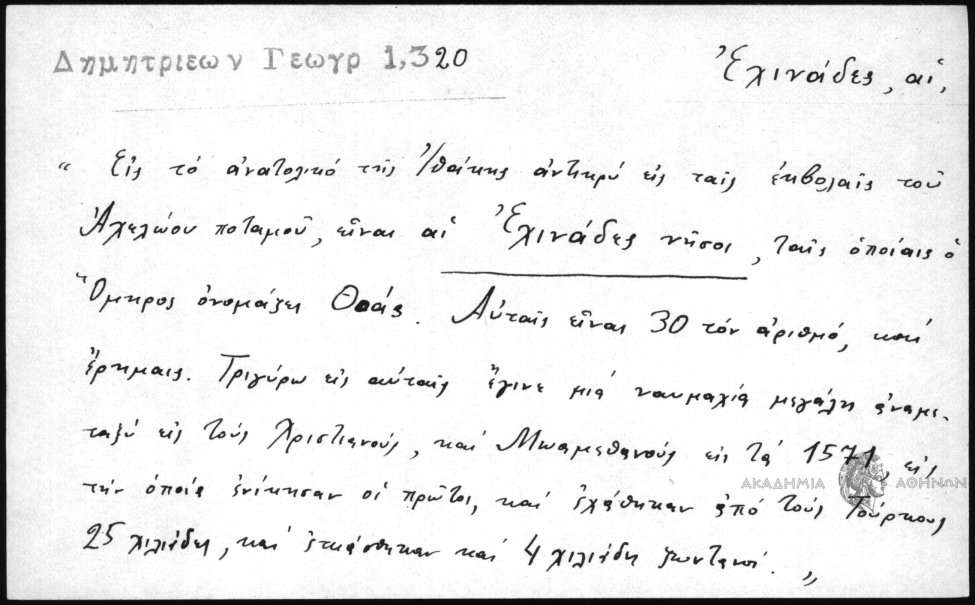 Δημητριεων Γεωγρ 1,320
Ἐχινάδες, αἱ,
“ Εἰς τό ἀνατολικό τῆς Ἰθάκης ἀντικρύ εἰς ταῖς ἐκβολαῖς τοῦ
Ἀχελώου ποταμοῦ, εἶναι αἱ Ἐχινάδες νῆσοι, ταῖς ὁποίαις ὁ
Ὅμηρος ὀνομάζει Θοάς. Αὐταῖς εἶναι 30 τόν ἀριθμό, καί
ἔρημαις. Τριγύρω εἰς αὐταῖς ἔγινε μιά ναυμαχία μεγάλη ἀναμε-
ταξύ εἰς τούς Χριστιανούς, καί Μωαμεθανούς εἰς τά 1571, εἰς
τήν ὁποία ἐνίκησαν οἱ πρῶτοι, καί ἐχάθηκαν ἀπό τούς Τούρκους
25 χιλιάδες, καί ἐπιάσθηκαν καί 4 χιλιάδες ζωντανοί. „
ΑΚΑΔΗΜΙΑ ΑΘΗΝΩΝ